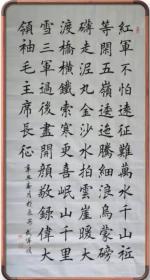 紅軍不怕遠征難萬水千山祗
等閑五嶺逶迤騰細浪烏蒙磅
礴走泥丸金沙水拍雲崖暖大
渡橋橫鐵索寒更喜岷山千里
雪三軍過後盡開顏敬錄偉大
領袖毛主席長征